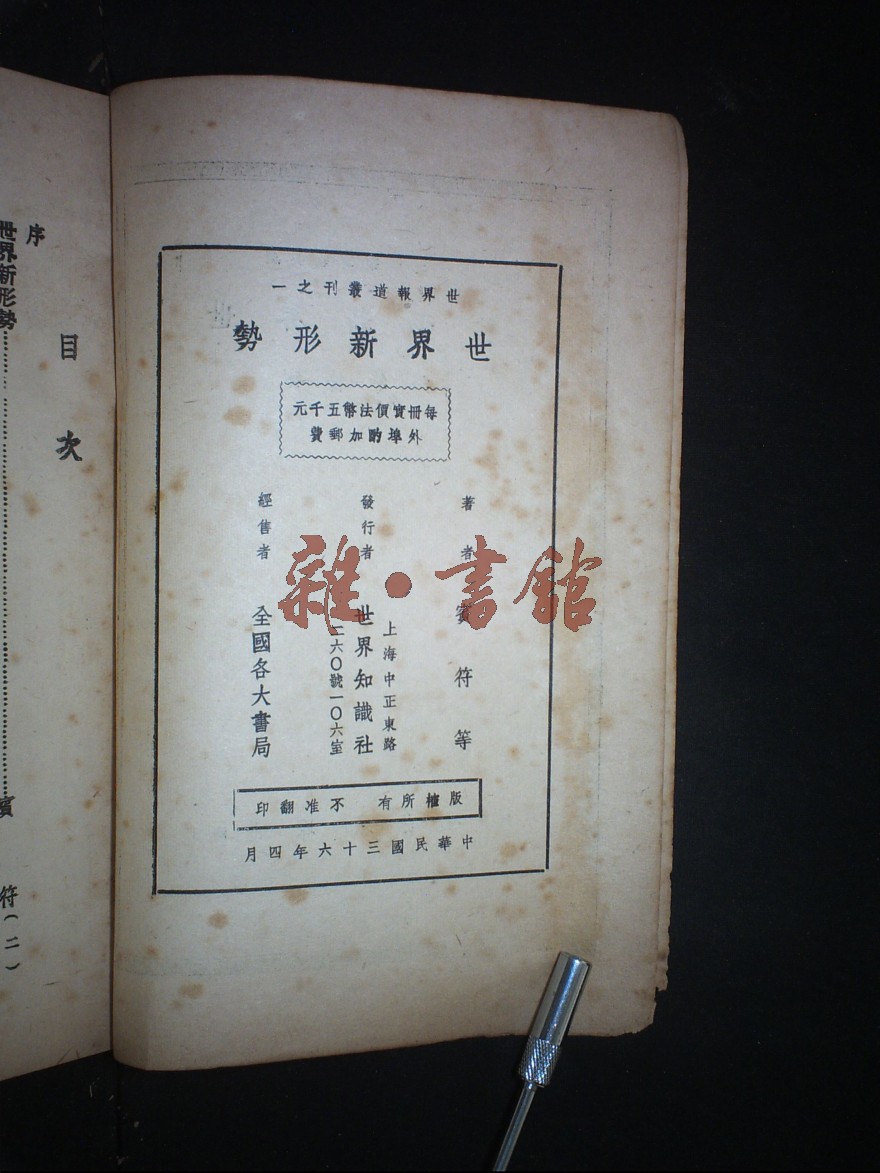 世界報道叢刊之一
世界新形勢
每冊實價法幣五千元
外埠酌加郵費
著者 賓符等
上海中正東路
發行者 世界知識社
六〇號一〇六室
經售者 全國各大書局
版權所有 不准翻印
中華民國三十六年四月
目次
序
世界新形勢……賓符(二)
雜·書館